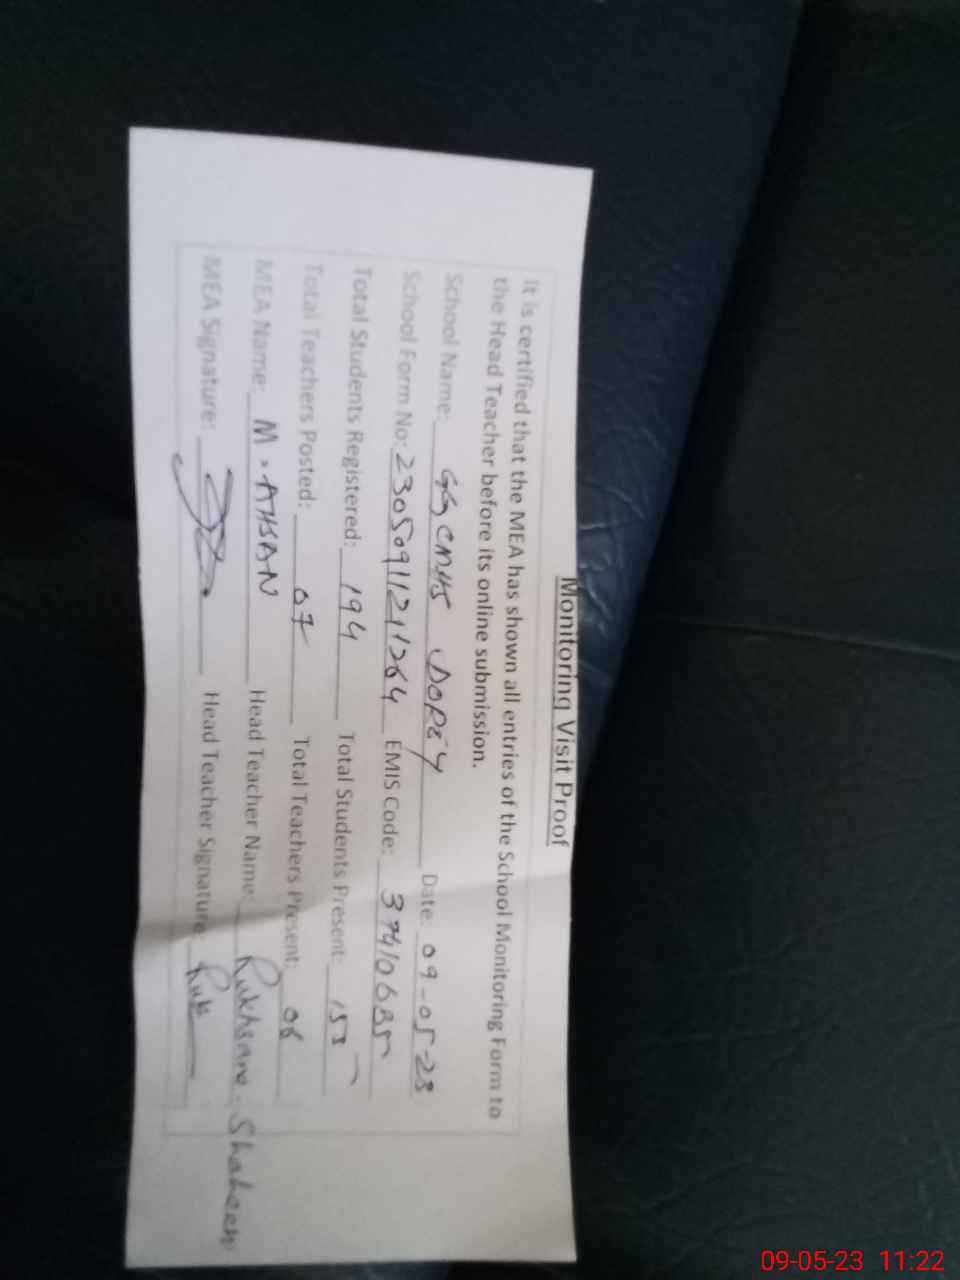 Monitoring Visit Proof
It is certified that the MEA has shown all entries of the School Monitoring Form to
the Head Teacher before its online submission.
School Name: GG CMHS DOREY Date: 09-05-23
School Form No: EMIS Code:
Total Students Registered: 194 Total Students Present: 153
Total Teachers Posted: 07 Total Teachers Present: 06
MEA Name: M. AHSAN Head Teacher Name: Rukhsana. Shaheen
MEA Signature: Head Teacher Signature:
09-05-23 11:22